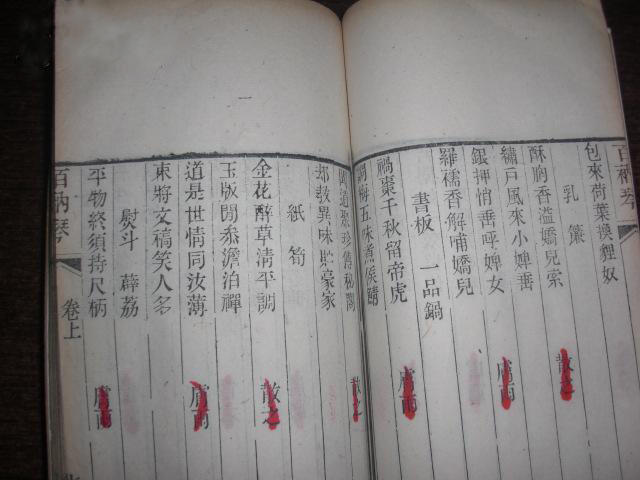 百衲琴
包來荷葉換貍奴
乳 簾
酥胸香溢嬌兒索 散之
繡戶風來小婢垂 膚雨
銀押悄垂呼婢女
羅襦香解哺嬌兒
書板 一品鍋
禍棗千秋留帝虎 膚雨
調梅五味煮侯鯖
道聚珍傳秘閣 散之
却教異味貯豪家
紙 筍
金花醉草清平調 散之
玉版閒參澹泊禪
道是世情同汝薄 膚雨
將文稿笑人名
熨斗 薜荔
平物終須持尺柄 膚雨
百衲琴 卷上